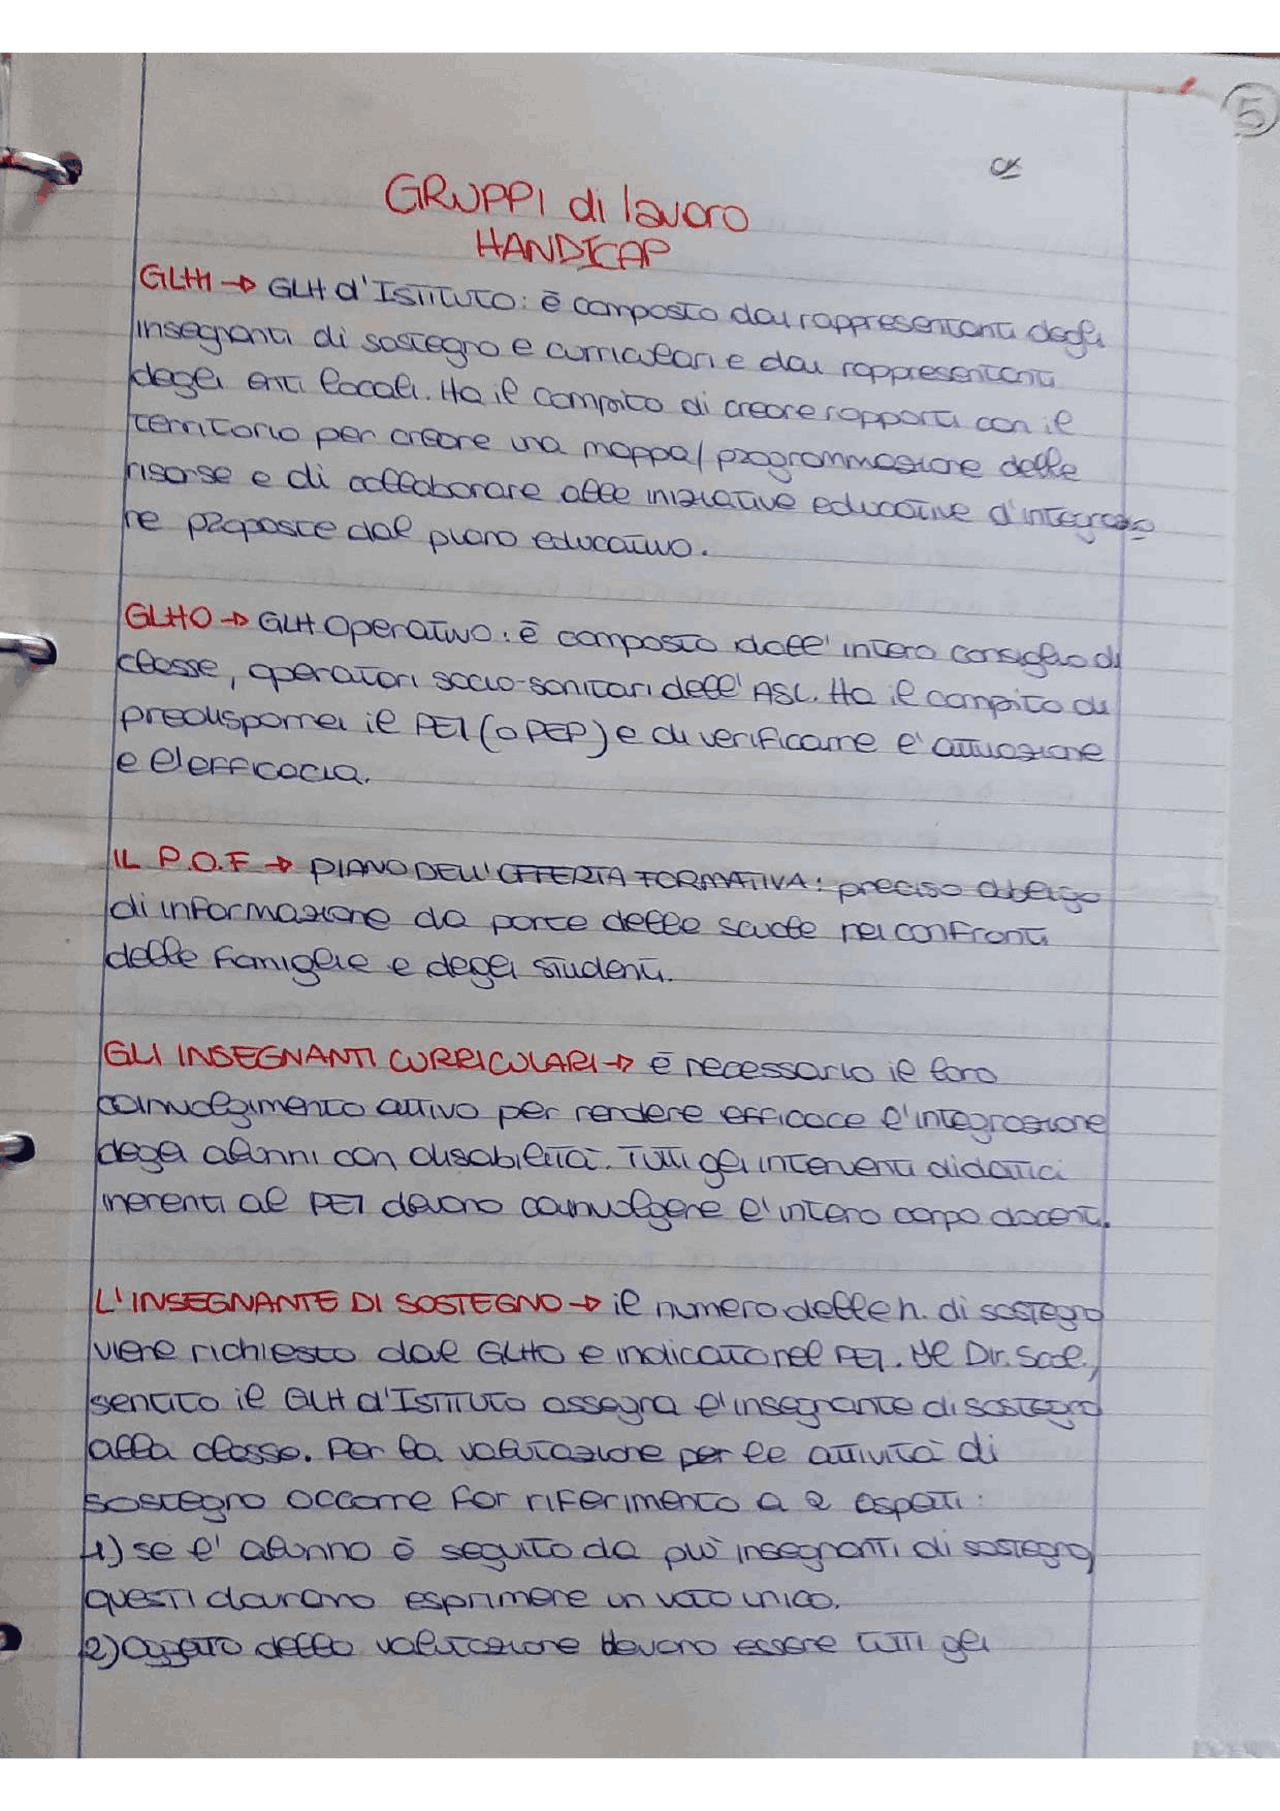 5
GRUPPI di lavoro
HANDICAP
GLHI → GLH d'ISTITUTO: è composto dai rappresentanti degli
insegnanti di sostegno e curriculari e dai rappresentanti
degli enti locali. Ha il compito di creare rapporti con il
territorio per creare una mappa/programmazione delle
risorse e di collaborare alle iniziative educative d'integrazio
ne proposte dal piano educativo.
GLHO → GLH operativo: è composto dall'intero consiglio di
classe, operatori socio-sanitari dell'ASL. Ha il compito di
predisporre il PEI (o PEP) e di verificarne l'attuazione
e l'efficacia.
IL P.O.F → PIANO DELL'OFFERTA FORMATIVA: preciso obbligo
di informazione da parte delle scuole nei confronti
delle famiglie e degli studenti.
GLI INSEGNANTI CURRICULARI → è necessario il loro
coinvolgimento attivo per rendere efficace l'integrazione
degli alunni con disabilità. Tutti gli interventi didattici
inerenti al PEI devono coinvolgere l'intero corpo docenti.
L'INSEGNANTE DI SOSTEGNO → il numero delle h. di sostegno
viene richiesto dal GLHO e indicato nel PEI. Il Dir. Scol.,
sentito il GLH d'ISTITUTO assegna l'insegnante di sostegno
alla classe. Per la valutazione per le attività di
sostegno occorre far riferimento a 2 aspetti:
1) se l'alunno è seguito da più insegnanti di sostegno,
questi dovranno esprimere un voto unico.
2) oggetto della valutazione devono essere tutti gli